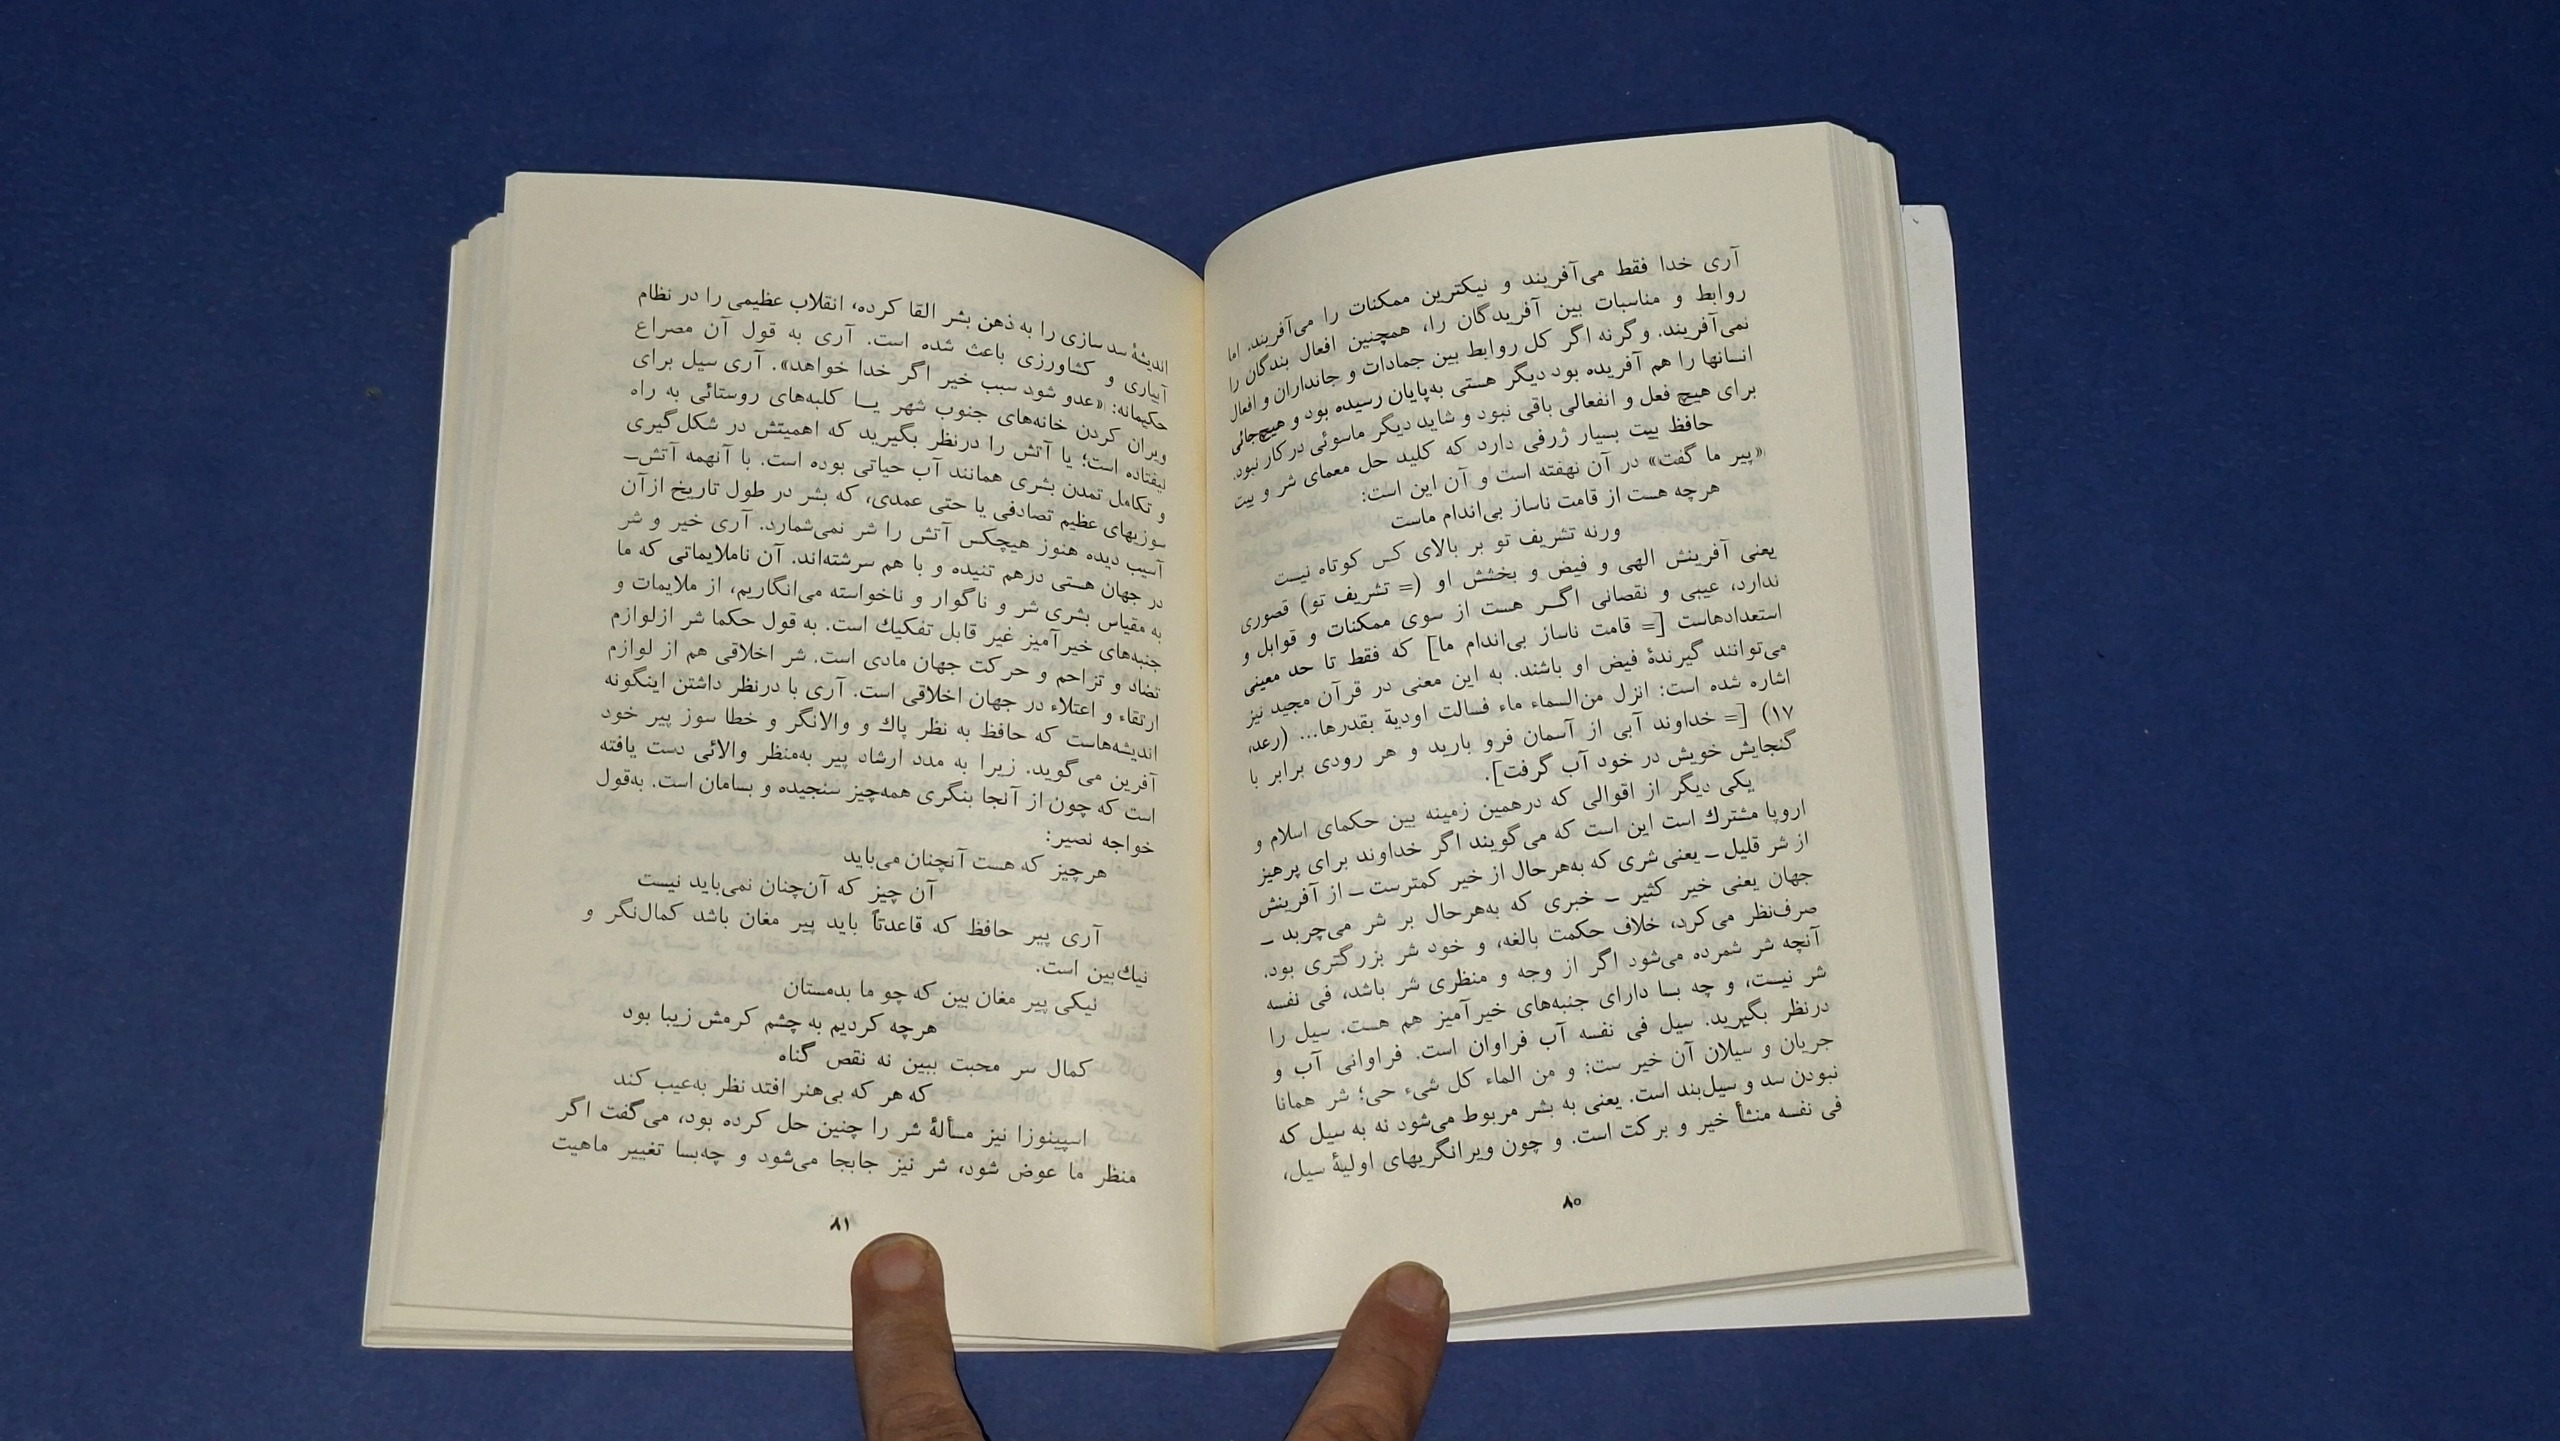 آری خدا فقط می‌آفریند و نیکترین ممکنات را می‌آفریند. اما
روابط و مناسبات بین آفریدگان را، همچنین افعال بندگان را
نمی‌آفریند. وگرنه اگر کل روابط بین جمادات و جانداران و افعال
انسانها را هم آفریده بود دیگر هستی به‌پایان رسیده بود و هیچ‌جائی
برای هیچ فعل و انفعالی باقی نبود و شاید دیگر ماسوئی درکار نبود.
حافظ بیت بسیار ژرفی دارد که کلید حل معمای شر و بیت
«پیر ما گفت» در آن نهفته است و آن این است:
هرچه هست از قامت ناساز بی‌اندام ماست
ورنه تشریف تو بر بالای کس کوتاه نیست
یعنی آفرینش الهی و فیض و بخشش او (= تشریف تو) قصوری
ندارد، عیبی و نقصانی اگر هست از سوی ممکنات و قوابل و
استعدادهاست [= قامت ناساز بی‌اندام ما] که فقط تا حد معینی
می‌توانند گیرندهٔ فیض او باشند. به این معنی در قرآن مجید نیز
اشاره شده است: انزل من‌السماء ماء فسالت اودیة بقدرها... (رعد،
۱۷) [= خداوند آبی از آسمان فرو بارید و هر رودی برابر با
گنجایش خویش در خود آب گرفت].
یکی دیگر از اقوالی که درهمین زمینه بین حکمای اسلام و
اروپا مشترك است این است که می‌گویند اگر خداوند برای پرهیز
از شر قلیل ــ یعنی شری که به‌هرحال از خیر کمترست ــ از آفرینش
جهان یعنی خیر کثیر ــ خبری که به‌هرحال بر شر می‌چربد ــ
صرف‌نظر می‌کرد، خلاف حکمت بالغه، و خود شر بزرگتری بود.
آنچه شر شمرده می‌شود اگر از وجه و منظری شر باشد، فی نفسه
شر نیست، و چه بسا دارای جنبه‌های خیرآمیز هم هست. سیل را
درنظر بگیرید. سیل فی نفسه آب فراوان است. فراوانی آب و
جریان و سیلان آن خیر ست: و من الماء کل شیء حی؛ شر همانا
نبودن سد و سیل‌بند است. یعنی به بشر مربوط می‌شود نه به سیل که
فی نفسه منشأ خیر و برکت است. و چون ویرانگریهای اولیهٔ سیل،
۸۰
اندیشهٔ سدسازی را به ذهن بشر القا کرده، انقلاب عظیمی را در نظام
آبیاری و کشاورزی باعث شده است. آری به قول آن مصراع
حکیمانه: «عدو شود سبب خیر اگر خدا خواهد». آری سیل برای
ویران کردن خانه‌های جنوب شهر یا کلبه‌های روستائی به راه
نیفتاده است؛ یا آتش را درنظر بگیرید که اهمیتش در شکل‌گیری
و تکامل تمدن بشری همانند آب حیاتی بوده است. با آنهمه آتش‌ــ
سوزیهای عظیم تصادفی یا حتی عمدی، که بشر در طول تاریخ ازآن
آسیب دیده هنوز هیچکس آتش را شر نمی‌شمارد. آری خیر و شر
در جهان هستی درهم تنیده و با هم سرشته‌اند. آن ناملایماتی که ما
به مقیاس بشری شر و ناگوار و ناخواسته می‌انگاریم، از ملایمات و
جنبه‌های خیرآمیز غیر قابل تفکیك است. به قول حکما شر ازلوازم
تضاد و تزاحم و حرکت جهان مادی است. شر اخلاقی هم از لوازم
ارتقاء و اعتلاء در جهان اخلاقی است. آری با درنظر داشتن اینگونه
اندیشه‌هاست که حافظ به نظر پاك و والانگر و خطا سوز پیر خود
آفرین می‌گوید. زیرا به مدد ارشاد پیر به‌منظر والائی دست یافته
است که چون از آنجا بنگری همه‌چیز سنجیده و بسامان است. به‌قول
خواجه نصیر:
هرچیز که هست آنچنان می‌باید
آن چیز که آن‌چنان نمی‌باید نیست
آری پیر حافظ که قاعدتاً باید پیر مغان باشد کمال‌نگر و
نیك‌بین است.
نیکی پیر مغان بین که چو ما بدمستان
هرچه کردیم به چشم کرمش زیبا بود
کمال سر محبت ببین نه نقص گناه
که هر که بی‌هنر افتد نظر به‌عیب کند
اسپینوزا نیز مسألهٔ شر را چنین حل کرده بود، می‌گفت اگر
منظر ما عوض شود، شر نیز جابجا می‌شود و چه‌بسا تغییر ماهیت
۸۱